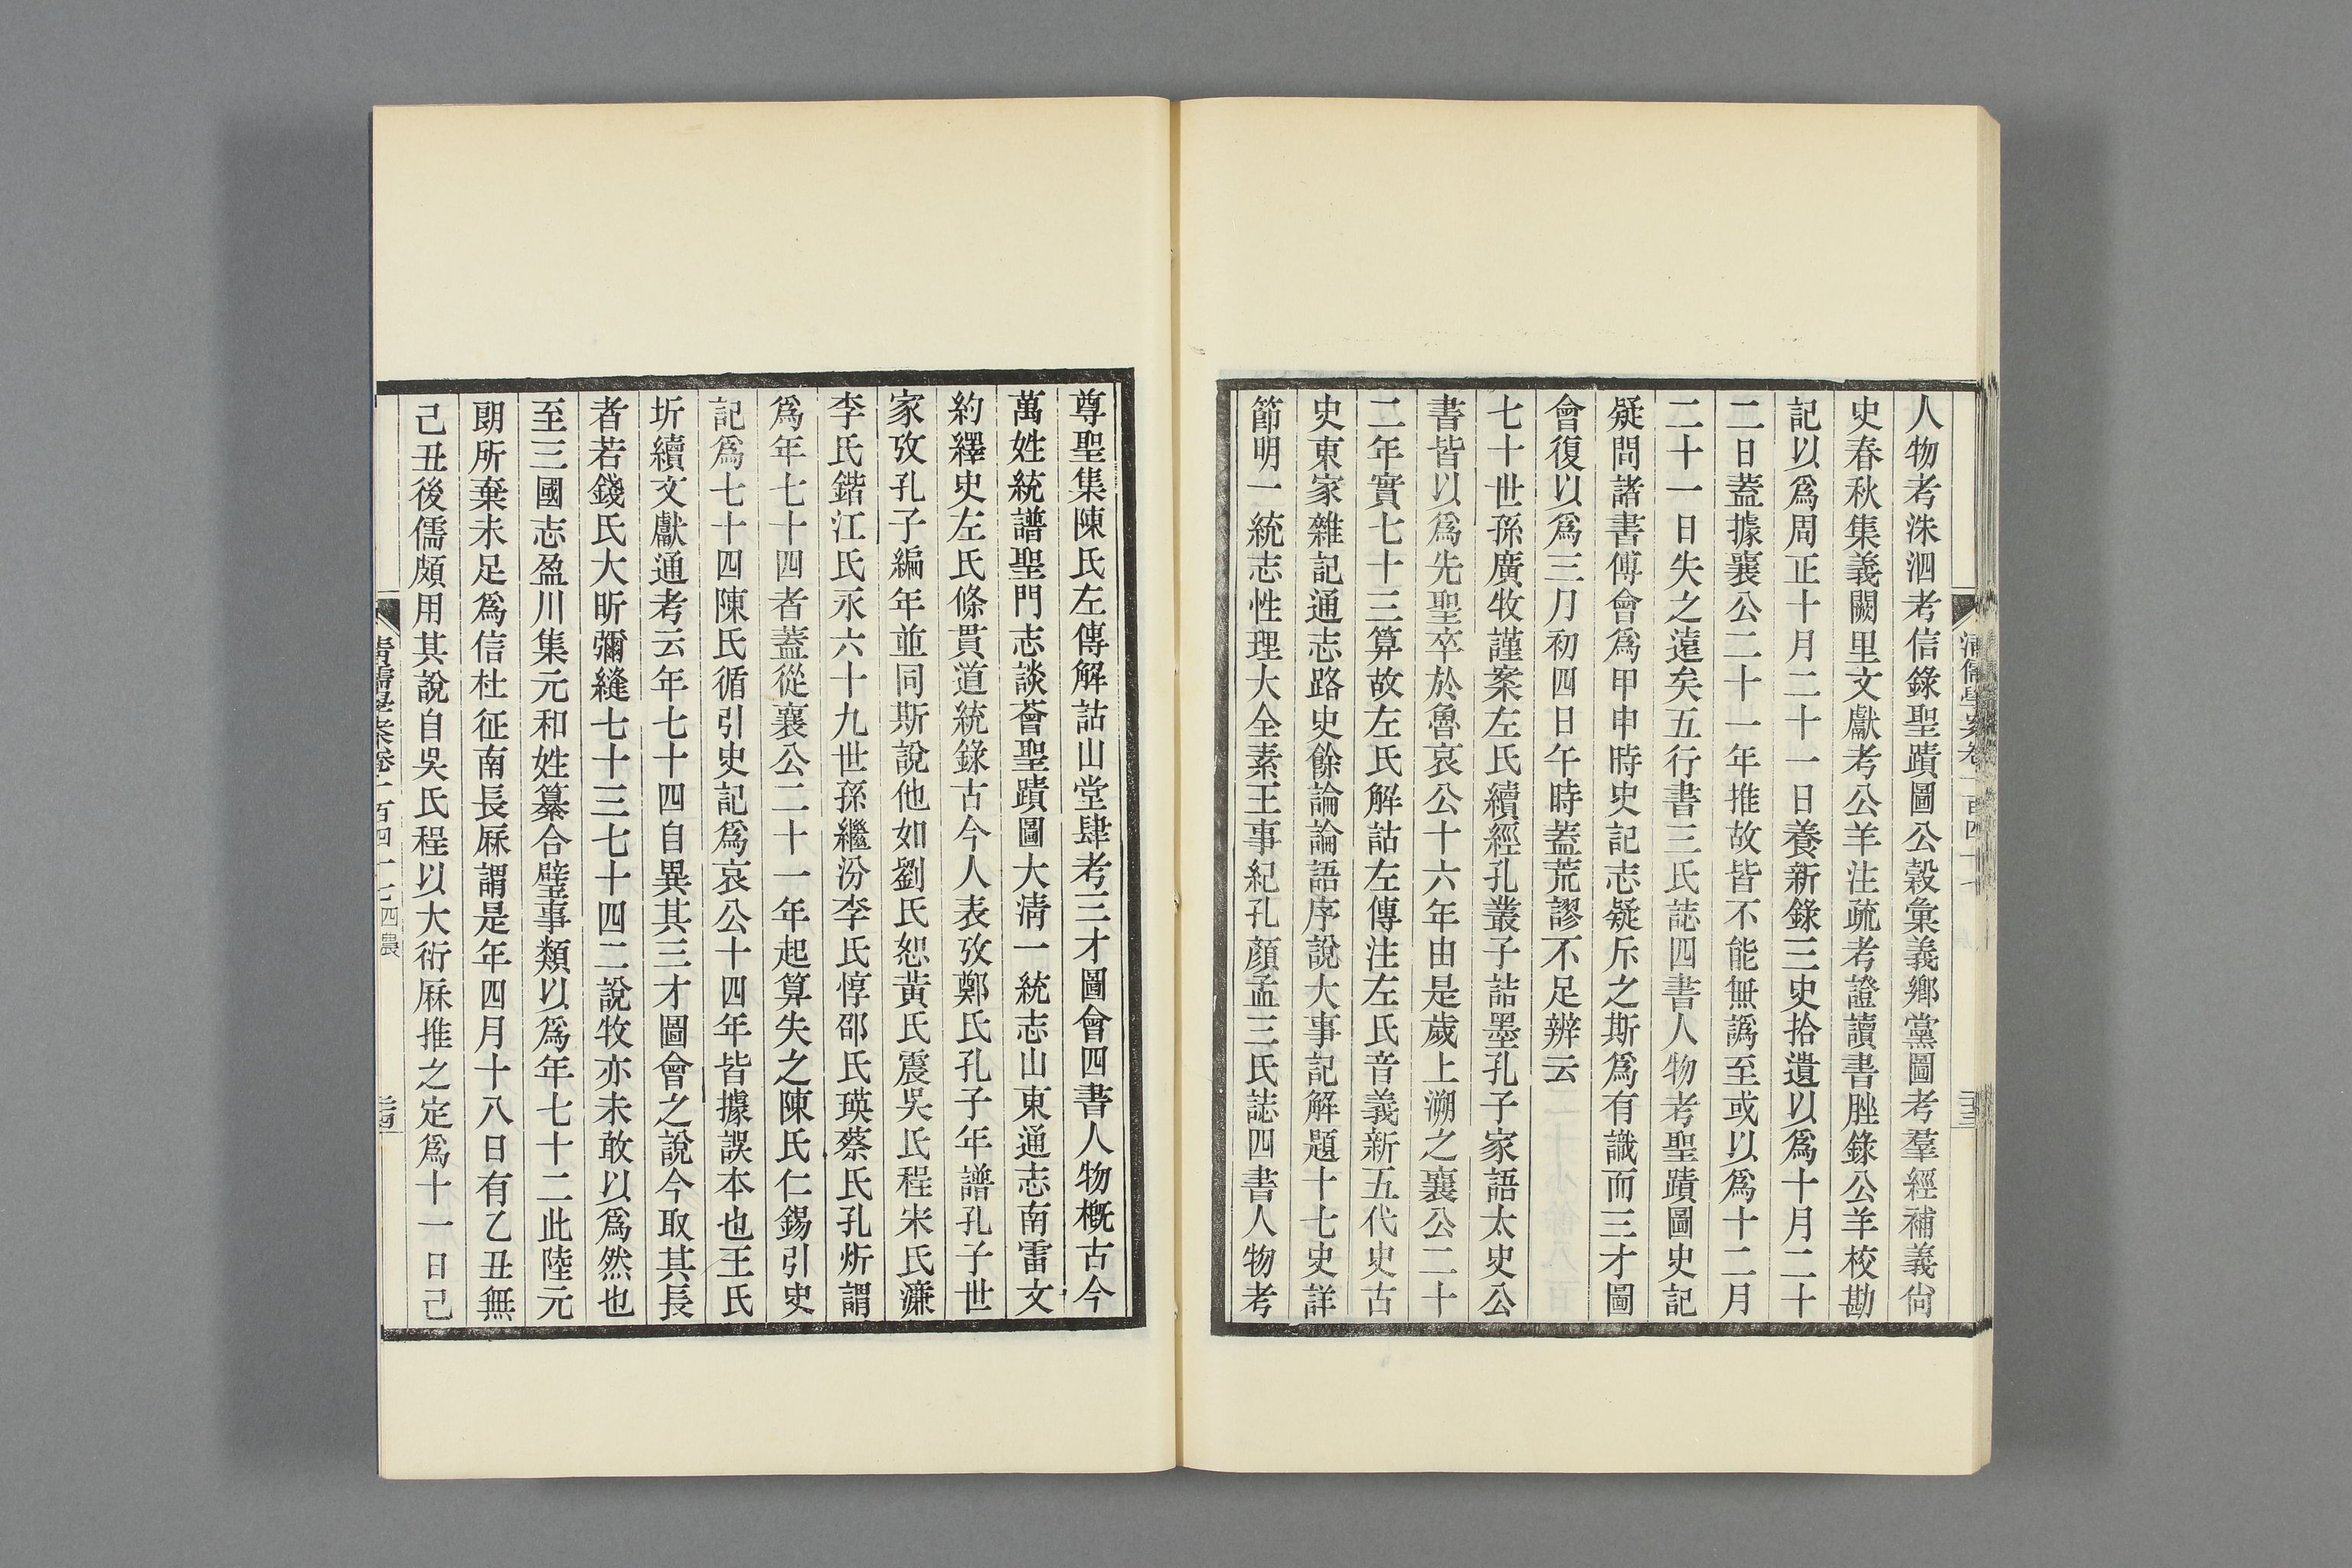 人物考洙泗考信錄聖蹟圖公穀彙義鄉黨圖考羣經補義尙
史春秋集義闕里文獻考公羊注疏考證讀書脞錄公羊校勘
記以爲周正十月二十一日養新錄三史拾遺以爲十月二十
二日葢據襄公二十一年推故皆不能無譌至或以爲十二月
二十一日失之遠矣五行書三氏誌四書人物考聖蹟圖史記
疑問諸書傅會爲甲申時史記志疑斥之斯爲有識而三才圖
會復以爲三月初四日午時葢荒謬不足辨云
七十世孫廣牧謹案左氏續經孔叢子詰墨孔子家語太史公
書皆以爲先聖卒於魯哀公十六年由是歲上溯之襄公二十
二年實七十三算故左氏解詁左傳注左氏音義新五代史古
史東家雜記通志路史餘論論語序說大事記解題十七史詳
節明一統志性理大全素王事紀孔顏孟三氏誌四書人物考
尊聖集陳氏左傳解詁山堂肆考三才圖會四書人物槪古今
萬姓統譜聖門志談薈聖蹟圖大淸一統志山東通志南雷文
約繹史左氏條貫道統錄古今人表攷鄭氏孔子年譜孔子世
家攷孔子編年並同斯說他如劉氏恕黃氏震吳氏程宋氏濂
李氏鍇江氏永六十九世孫繼汾李氏惇邵氏瑛蔡氏孔炘謂
爲年七十四者葢從襄公二十一年起算失之陳氏仁錫引史
記爲七十四陳氏循引史記爲哀公十四年皆據誤本也王氏
圻續文獻通考云年七十四自異其三才圖會之說今取其長
者若錢氏大昕彌縫七十三七十四二說牧亦未敢以爲然也
至三國志盈川集元和姓纂合璧事類以爲年七十二此陸元
朗所棄未足爲信杜征南長厤謂是年四月十八日有乙丑無
己丑後儒頗用其說自吳氏程以大衍厤推之定爲十一日己
清儒學案卷一百四十七
四農